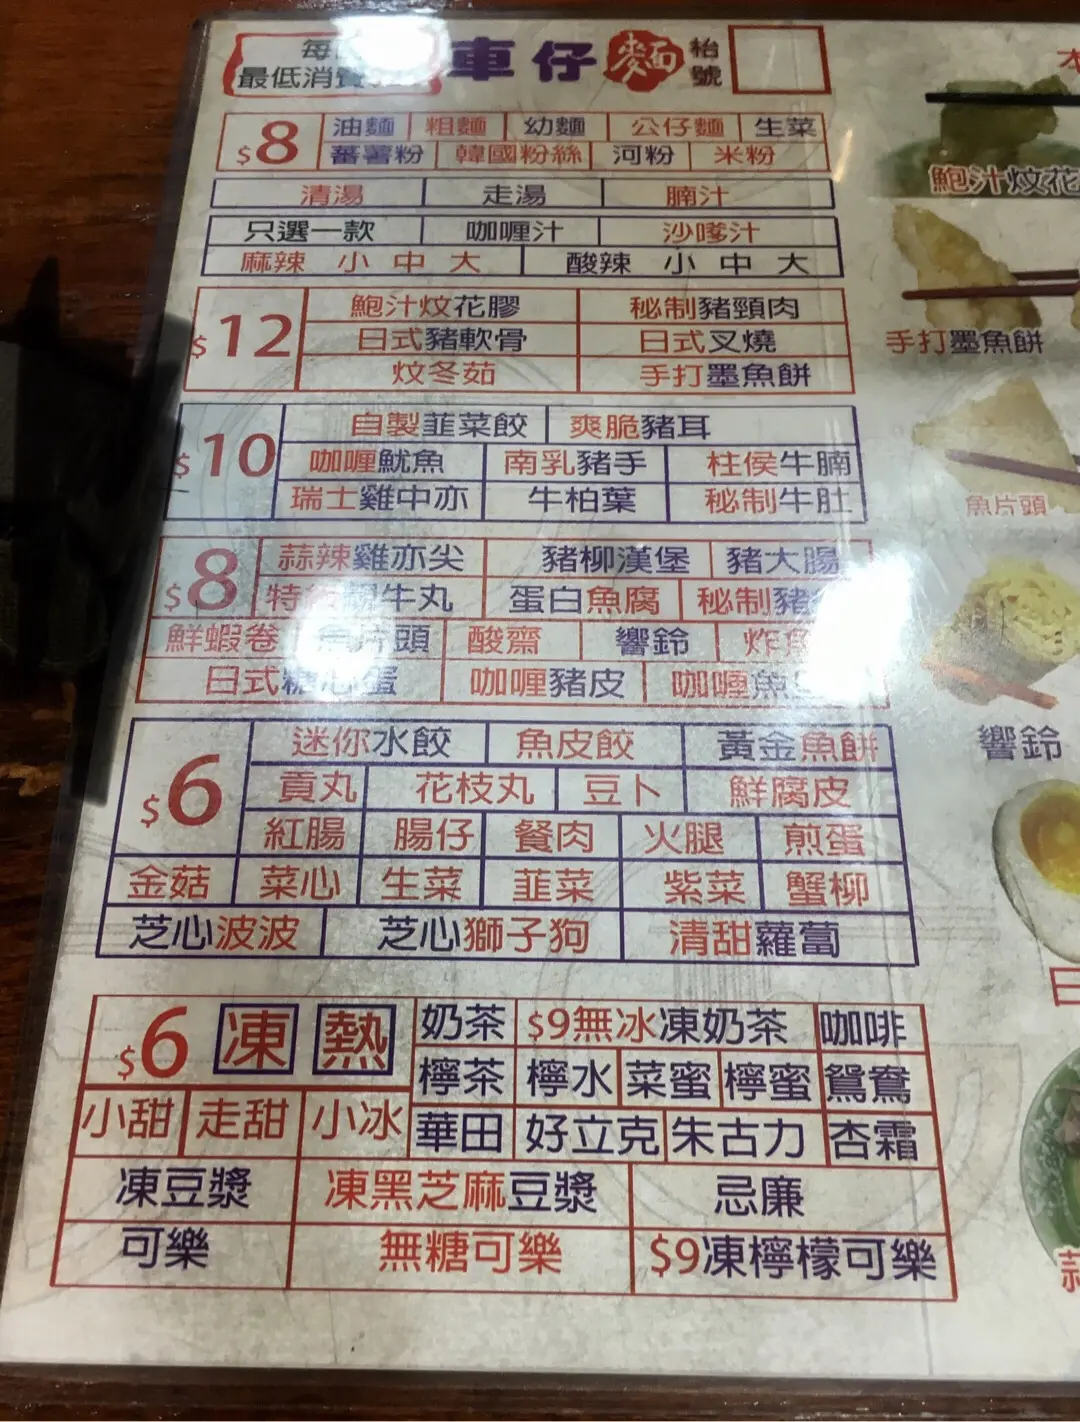 每
最低消費
車仔麵 枱號
$8 油麵 粗麵 幼麵 公仔麵 生菜
蕃薯粉 韓國粉絲 河粉 米粉
清湯 走湯 腩汁
只選一款 咖喱汁 沙嗲汁
麻辣 小 中 大 酸辣 小 中 大
$12 鮑汁炆花膠 秘制豬頸肉
日式豬軟骨 日式叉燒
炆冬茹 手打墨魚餅
$10 自製韮菜餃 爽脆豬耳
咖喱魷魚 南乳豬手 柱侯牛腩
瑞士雞中亦 牛柏葉 秘制牛肚
$8 蒜辣雞亦尖 豬柳漢堡 豬大腸
特 牛丸 蛋白魚腐 秘制豬
鮮蝦卷 片頭 酸齋 響鈴 炸魚
日式糖心蛋 咖喱豬皮 咖喱魚
$6 迷你水餃 魚皮餃 黃金魚餅
貢丸 花枝丸 豆卜 鮮腐皮
紅腸 腸仔 餐肉 火腿 煎蛋
金菇 菜心 生菜 韮菜 紫菜 蟹柳
芝心波波 芝心獅子狗 清甜蘿蔔
$6 凍 熱 奶茶 $9無冰凍奶茶 咖啡
檸茶 檸水 菜蜜 檸蜜 鴛鴦
小甜 走甜 小冰 華田 好立克 朱古力 杏霜
凍豆漿 凍黑芝麻豆漿 忌廉
可樂 無糖可樂 $9凍檸檬可樂
本
鮑汁炆花
手打墨魚餅
魚片頭
響鈴
日
蒜